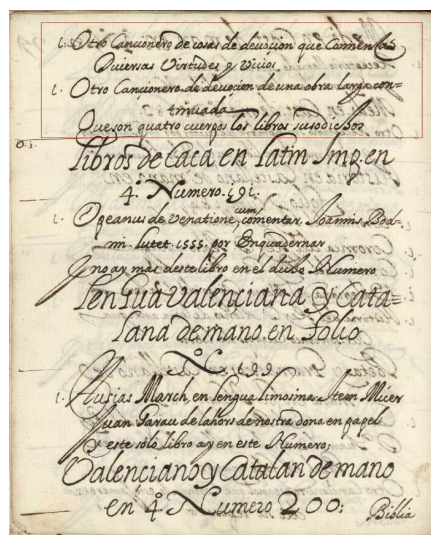 1. Otro Cancionero de cosas de devocion que Comiença
Diversas Virtudes y Vicios
1. Otro Cancionero de devocion de una obra larga con-
tinuada
Que son quatro cuerpos los libros susodichos
libros de Caca en latin Imp. en
4. Numero. 191.
1. Opeanus de venatione, cum comentar. Joannis Bod-
ini. Lutet. 1555. por Enquadernar
Y no ay mas deste libro en el dicho Numero
lengua valenciana y Cata=
lana de mano en folio
No. 199.
1. Ausias March, en lengua limosina. Item Micer
Juan Garau de lahors de nostra dona en papel
y este solo libro ay en este Numero;
Valenciano y Catalan de mano
en 4º Numero 200:
Biblia